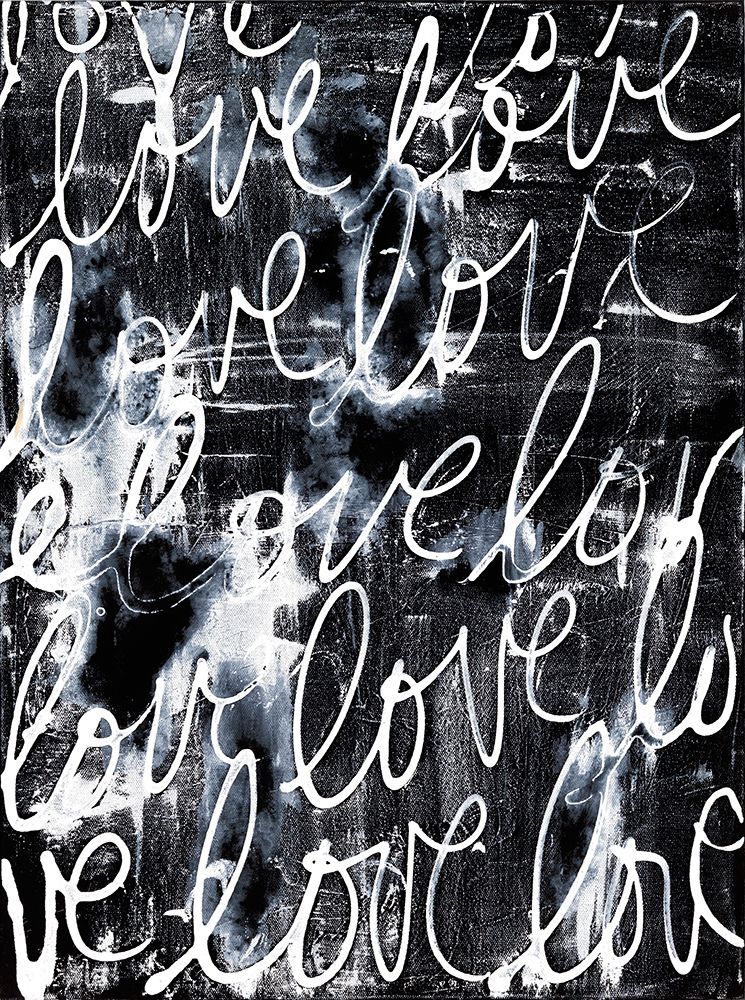 love lo
love love
love love
e love lov
lov love lo
ve love love